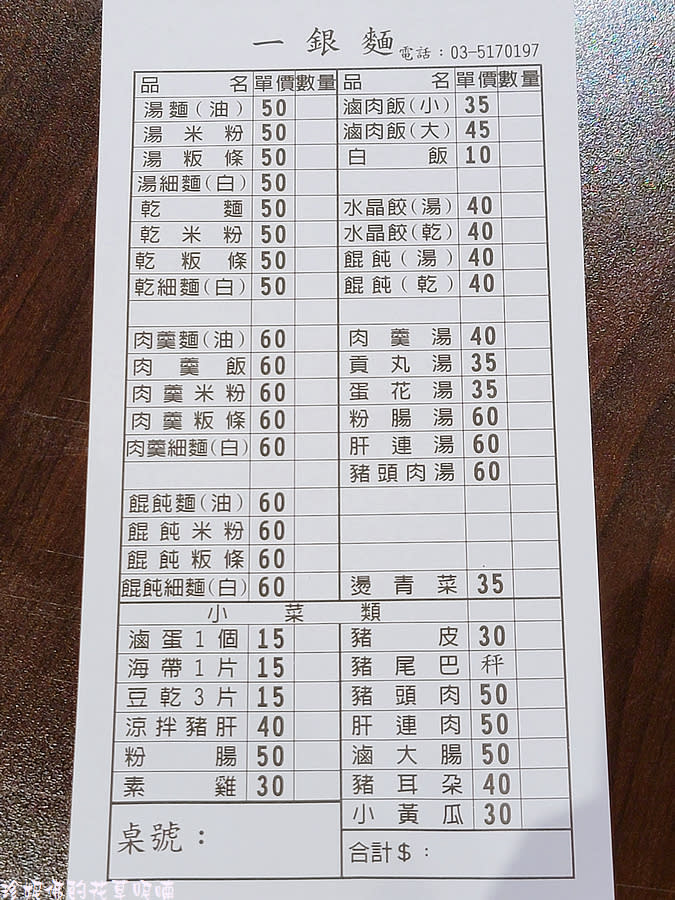 一銀麵 電話：03-5170197
品名 單價 數量 品名 單價 數量
湯麵(油) 50 滷肉飯(小) 35
湯米粉 50 滷肉飯(大) 45
湯粄條 50 白飯 10
湯細麵(白) 50
乾麵 50 水晶餃(湯) 40
乾米粉 50 水晶餃(乾) 40
乾粄條 50 餛飩(湯) 40
乾細麵(白) 50 餛飩(乾) 40
肉羹麵(油) 60 肉羹湯 40
肉羹飯 60 貢丸湯 35
肉羹米粉 60 蛋花湯 35
肉羹粄條 60 粉腸湯 60
肉羹細麵(白) 60 肝連湯 60
豬頭肉湯 60
餛飩麵(油) 60
餛飩米粉 60
餛飩粄條 60
餛飩細麵(白) 60 燙青菜 35
小菜類
滷蛋1個 15 豬皮 30
海帶1片 15 豬尾巴 秤
豆乾3片 15 豬頭肉 50
涼拌豬肝 40 肝連肉 50
粉腸 50 滷大腸 50
素雞 30 豬耳朶 40
小黃瓜 30
桌號：
合計$：